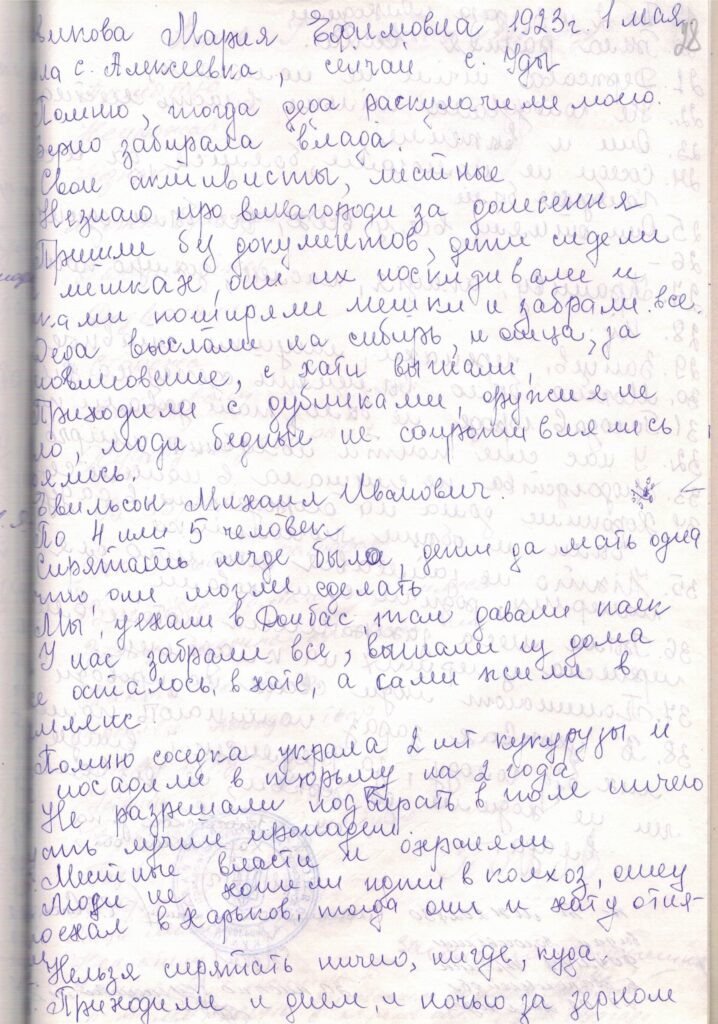 викова Мария Ефимовна 1923г. 1 мая
28
ла с. Алексеевка, сейчас с. Уды
Помню, тогда деда раскулачили моего.
ерно забирала влада.
Свои активисты, местные
Незнаю про винагороди за донесення
Пришли без документов, дети сидели
мешках, они их поскидивали и
ками поширяли мешки и забрали все.
Деда выслали на сибирь, и отца, за
с хати выгнали,
Приходили с дубинками, оружия не
ло, люди бедные не сопротивлялись
оялись.
Эвильсон Михаил Иванович.
По 4 или 5 человек
Спрятать негде было, дети да мать одна
что они могли сделать
Мы уехали в Донбас, там давали паек
У нас забрали все, выгнали из дома
е осталось в хате, а сами жили в
Помню соседка украла 2 шт кукурузы и
посадили в тюрьму на 2 года
Не разрешали подбирать в поле ничего
сть лучий пропадет.
Местные власти и охраняли
Люди не хотели пойти в колхоз, отец
оехал в Харьков, тогда они и хату отня-
Нельзя спрятать ничего, нигде, куда.
Приходили и днем, и ночью за зерном